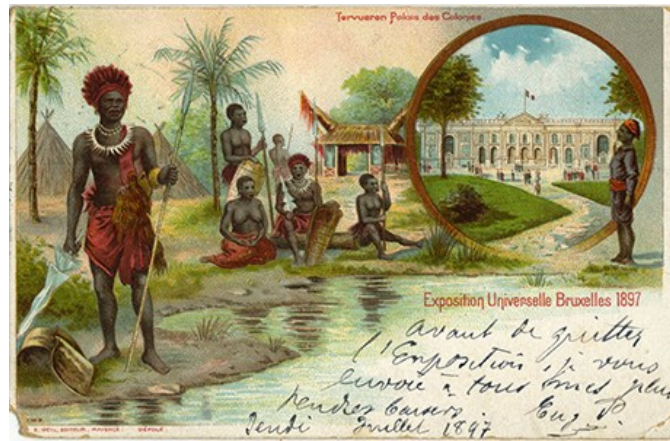 Tervueren Palais des Colonies
Exposition Universelle Bruxelles 1897
avant de quitter
l'Exposition, je vous
envoie à tous mes plus
tendres baisers. Eug. P.
Jeudi Juillet 1897
EDITEUR, MAYENCE. DÉPOSÉ.